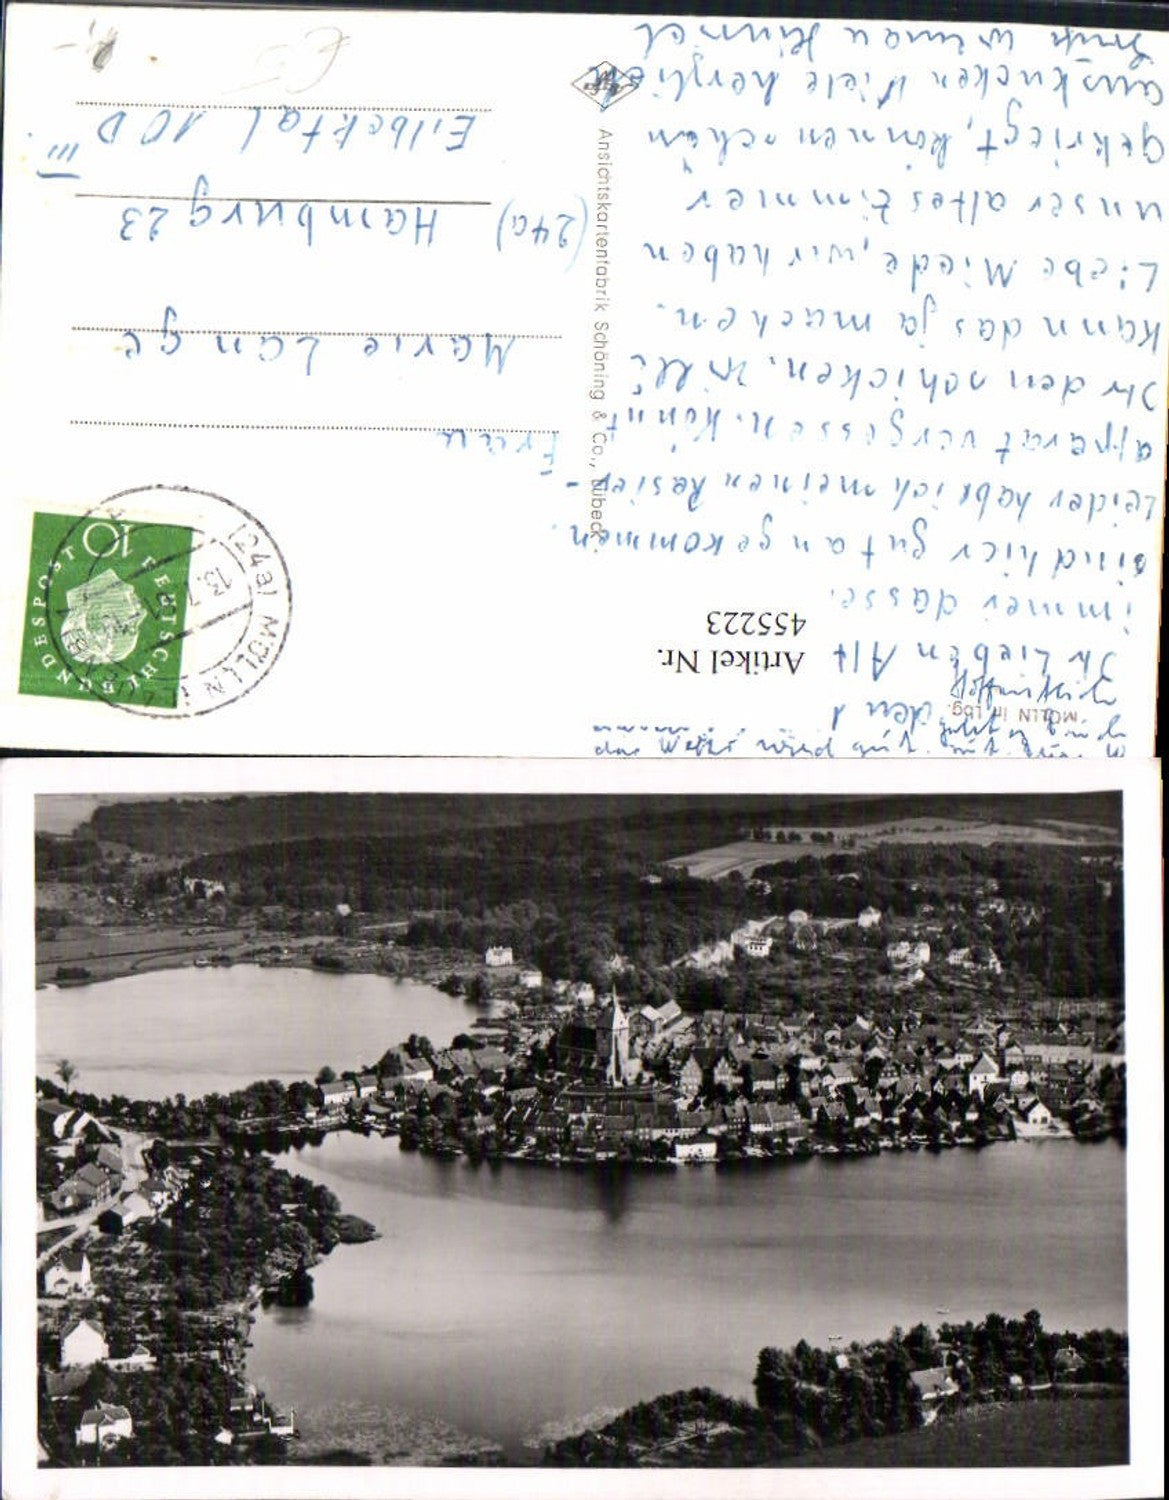 MÖLLN in Lbg.
den 1
Artikel Nr.
455223
Ihr Lieben Alt
immer dasse.
sind hier gut angekommen.
Leider hab ich meinen Rasier-
apparat vergessen. Könnt
Ihr den schicken. Willi
kann das ja machen.
Liebe Miede, wir haben
unser altes Zimmer
gekriegt, können schön
auskucken Viele herzlich
Ansichtskartenfabrik Schöning & Co., Lübeck
DEUTSCHE BUNDESPOST
10
(24a) MÖLLN
13.7
Frau
Marie Lange
(24a) Hamburg 23
Eilbektal 10 D
III